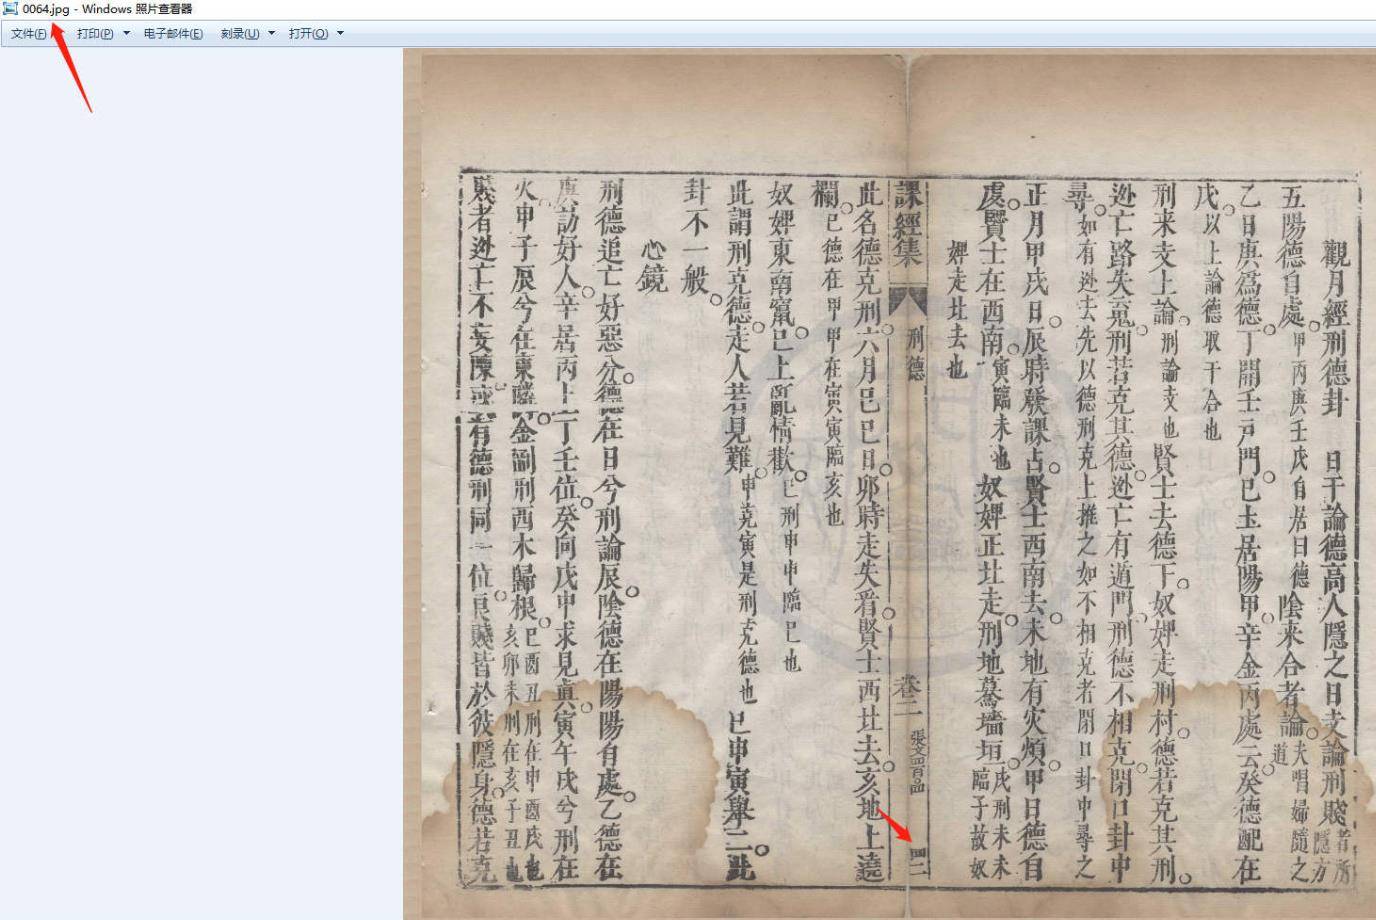 0064.jpg - Windows 照片查看器
文件(F) 打印(P) 电子邮件(E) 刻录(U) 打开(O)
觀月經刑德卦 日干論德高人隱之日支論刑賤者所隱方
五陽德自處甲丙庚壬戊自居日德陰來合者論夫唱婦隨之道
乙日庚爲德丁開壬戸門巳土居陽甲辛金丙處云癸德配在
戊以上論德取干合也
刑来支上論刑論支也賢士去德下奴婢走刑村德若克其刑
逃亡路失䰟刑若克其德逃亡有道門刑德不相克閉口卦中
尋如有逃去先以德刑克上推之如不相克者閉口卦中尋之
正月甲戌日辰時發課占賢士西南去未地有灾煩甲日德自
處賢士在西南寅臨未也奴婢正北走刑地驀墻垣戌刑未未臨子故奴
婢走北去也
課經集 刑德 卷二 張文 四二
此名德克刑六月巳巳日卯時走失看賢士西北去亥地上遶
欄巳德在甲甲在寅寅臨亥也
奴婢東南竄巳上亂情歡巳刑申申臨巳也
此謂刑克德走人若見難申克寅是刑克德也巳申寅舉二此
卦不一般
心鏡
刑德追亡好惡分德在日兮刑論辰陰德在陽陽有處乙德在
庚訪好人辛居丙上丁壬位癸向戊中求見真寅午戌兮刑在
火申子辰兮在東 金 刑西木歸根巳酉丑刑在申酉戌也亥卯未刑在亥子丑也
賤者逃亡不妄陳或有德刑同一位良賤皆於彼隱身德若克